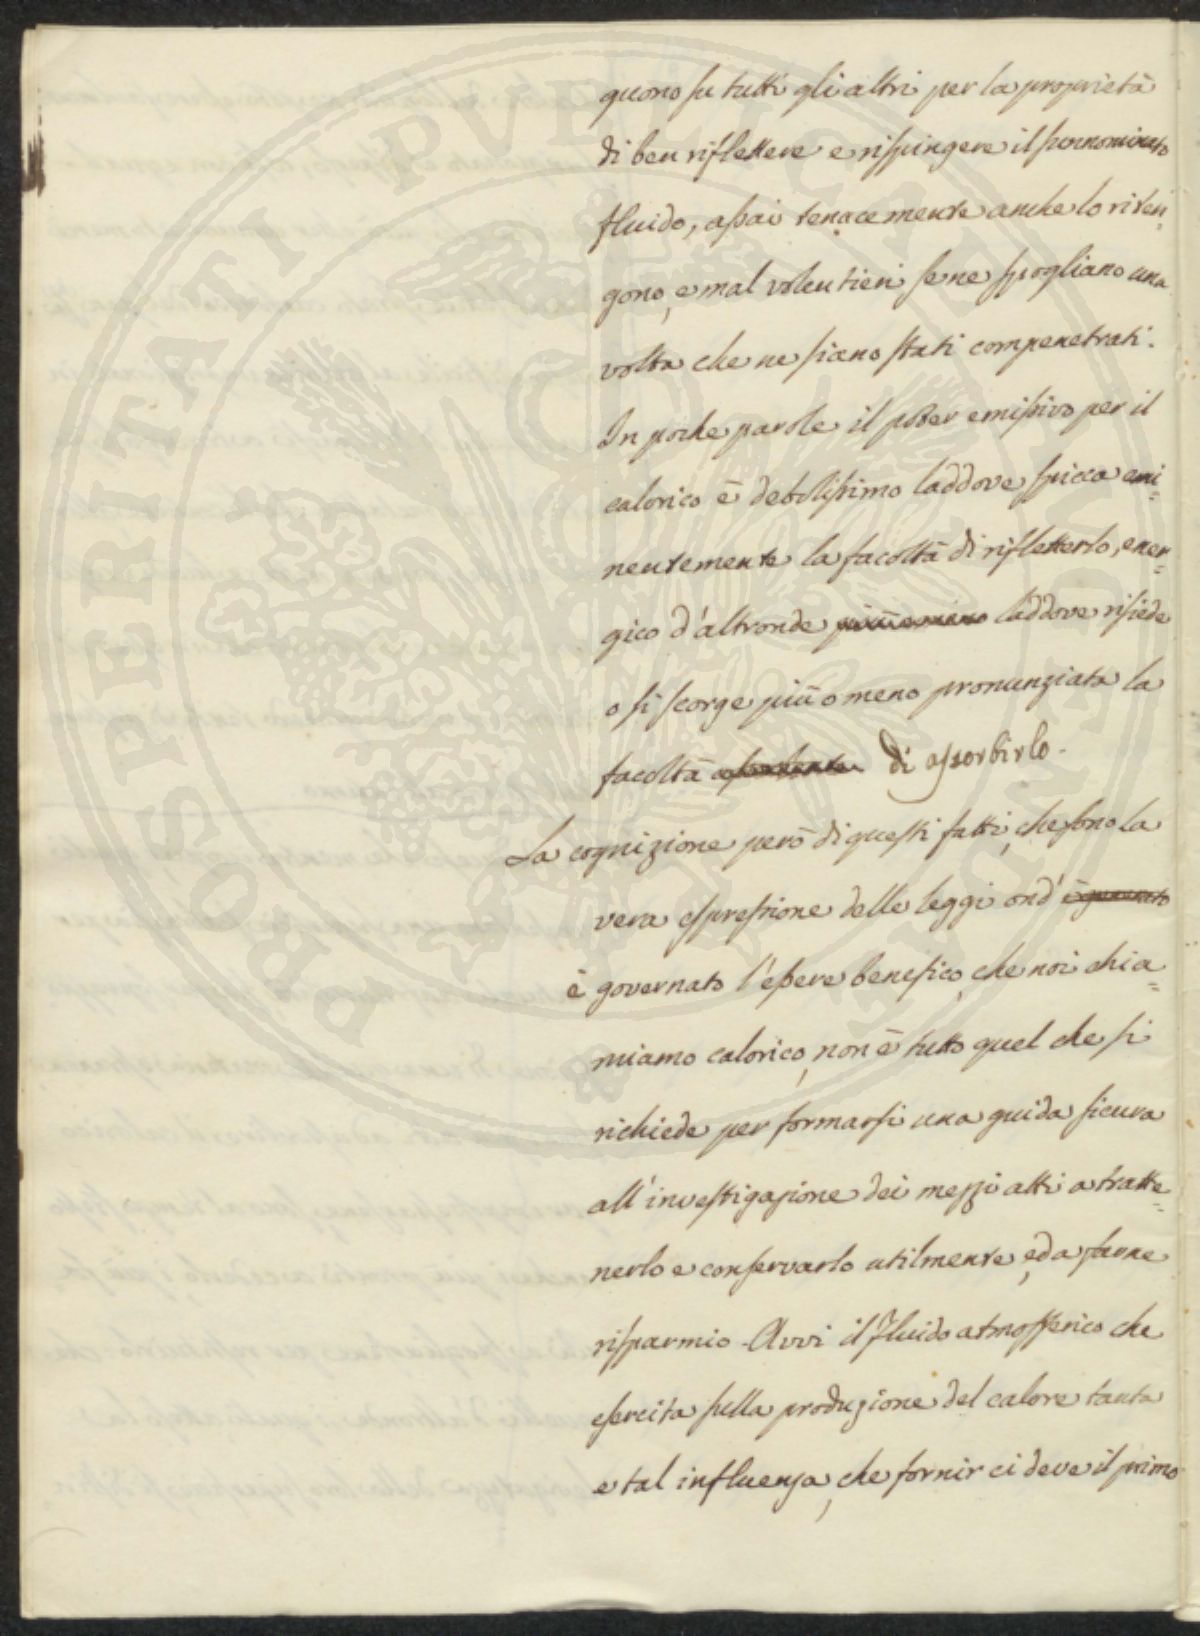 quono su tutti gli altri per la proprietà
di ben riflettere e rispingere il sunnominato
fluido, assai tenacemente anche lo riten,
gono, e mal volentieri se ne spogliano una
volta che ne siano stati compenetrati.
In poche parole il poter emissivo per il
calorico è debolissimo laddove spicca emi=
nentemente la facoltà di rifletterlo, ener=
gico d'altronde più o meno laddove risiede
o si scorge più o meno pronunziata la
facoltà assorbente di assorbirlo.
La cognizione però di questi fatti, che sono la
vera espressione delle leggi ond' è governato
è governato l'essere benefico, che noi chia=
miamo calorico, non è tutto quel che si
richiede per formarsi una guida sicura
all'investigazione dei mezzi atti a tratte=
nerlo e conservarlo utilmente, ed a farne
risparmio. Avvi il Fluido atmosferico che
esercita sulla produzione del calore tanta
e tal influenza, che fornir ci deve il primo
PROSPERITATI PVBLICAE AVGENDAE